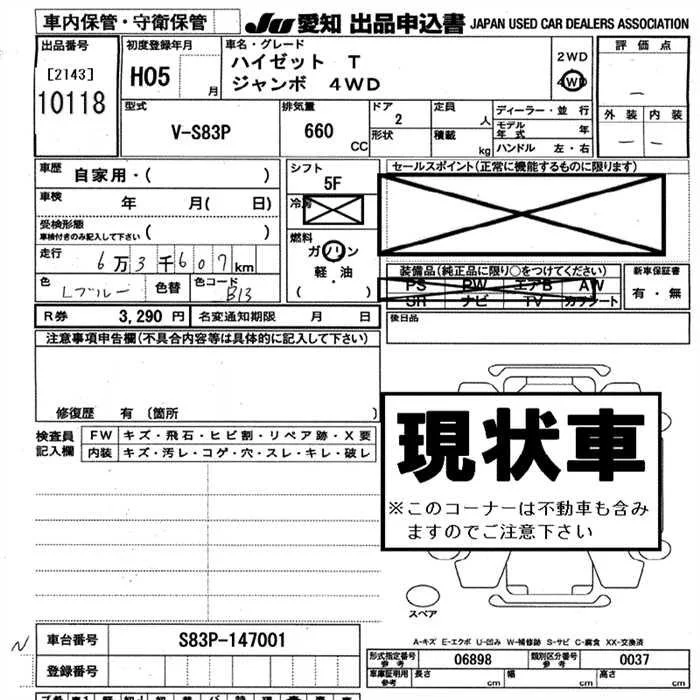 車内保管・守衛保管
JU 愛知 出品申込書 JAPAN USED CAR DEALERS ASSOCIATION
出品番号
[2143]
10118
初度登録年月
H05 月
車名・グレード
ハイゼット T
ジャンボ 4WD
2WD
4WD
評価点
―
外装 内装
― ―
型式
V-S83P
排気量
660 CC
ドア
2
形状
定員
人
積載
kg
ディーラー・並 行
モデル年式 年
ハンドル 左・右
車歴
自家用・( )
車検
年 月( 日)
受検形態
車検付きのみ記入して下さい ( )
走行
6万3千607km
色
Lブルー
色替
色コード
B13
シフト
5F
冷房
燃料
ガソリン
軽・油
( )
セールスポイント(正常に機能するものに限ります)
装備品(純正品に限り○をつけてください)
PS PW エアB AW
SR ナビ TV カワシート
新車保証書
有・無
R券 3,290 円
名変通知期限 月 日
後日品
注意事項申告欄(不具合内容等は具体的に記入して下さい)
修復歴 有 (箇所 )
検査員
記入欄
FW キズ・飛石・ヒビ割・リペア跡・X要
内装 キズ・汚レ・コゲ・穴・スレ・キレ・破レ
現状車
※このコーナーは不動車も含み
ますのでご注意下さい
スペア
A-キズ E-エクボ U-凹み W-補修跡 S-サビ C-腐食 XX-交換済
N
車台番号 S83P-147001
登録番号
形式指定番号
参考
06898
類別区分番号
参考
0037
車庫証明用
参考
長さ cm 幅 cm 高さ cm